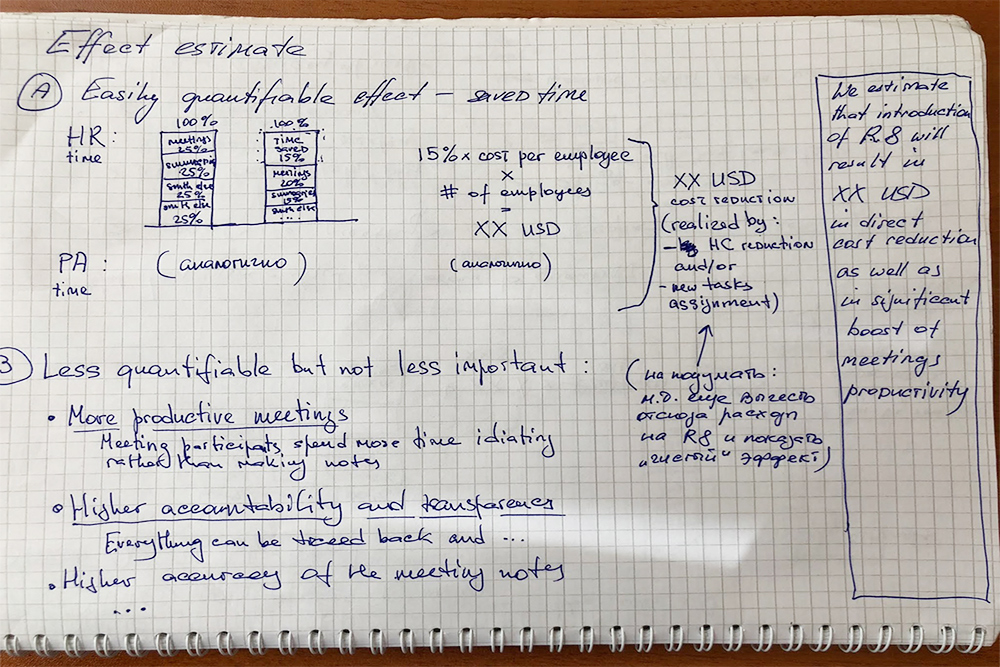 Effect estimate
A Easily quantifiable effect – saved time
HR:
time
100%
meetings
25%
summaries
25%
smth else
25%
smth else
25%
100%
Time
saved
15%
meetings
20%
summaries
15%
smth else
...
15% x cost per employee
x
# of employees
=
XX USD
PA:
time
(аналогично)
(аналогично)
XX USD
cost reduction
(realized by:
- HC reduction
and/or
- new tasks
assignment)
(на подумать:
м.б. еще вычесть
отсюда расходы
на R8 и показать
"чистый" эффект)
B Less quantifiable but not less important:
• More productive meetings
Meeting participants spend more time idiating
rather than making notes
• Higher accountability and transparency
Everything can be traced back and ...
• Higher accuracy of the meeting notes
...
We estimate
that introduction
of R8 will
result in
XX USD
in direct
cost reduction
as well as
in significant
boost of
meetings
productivity